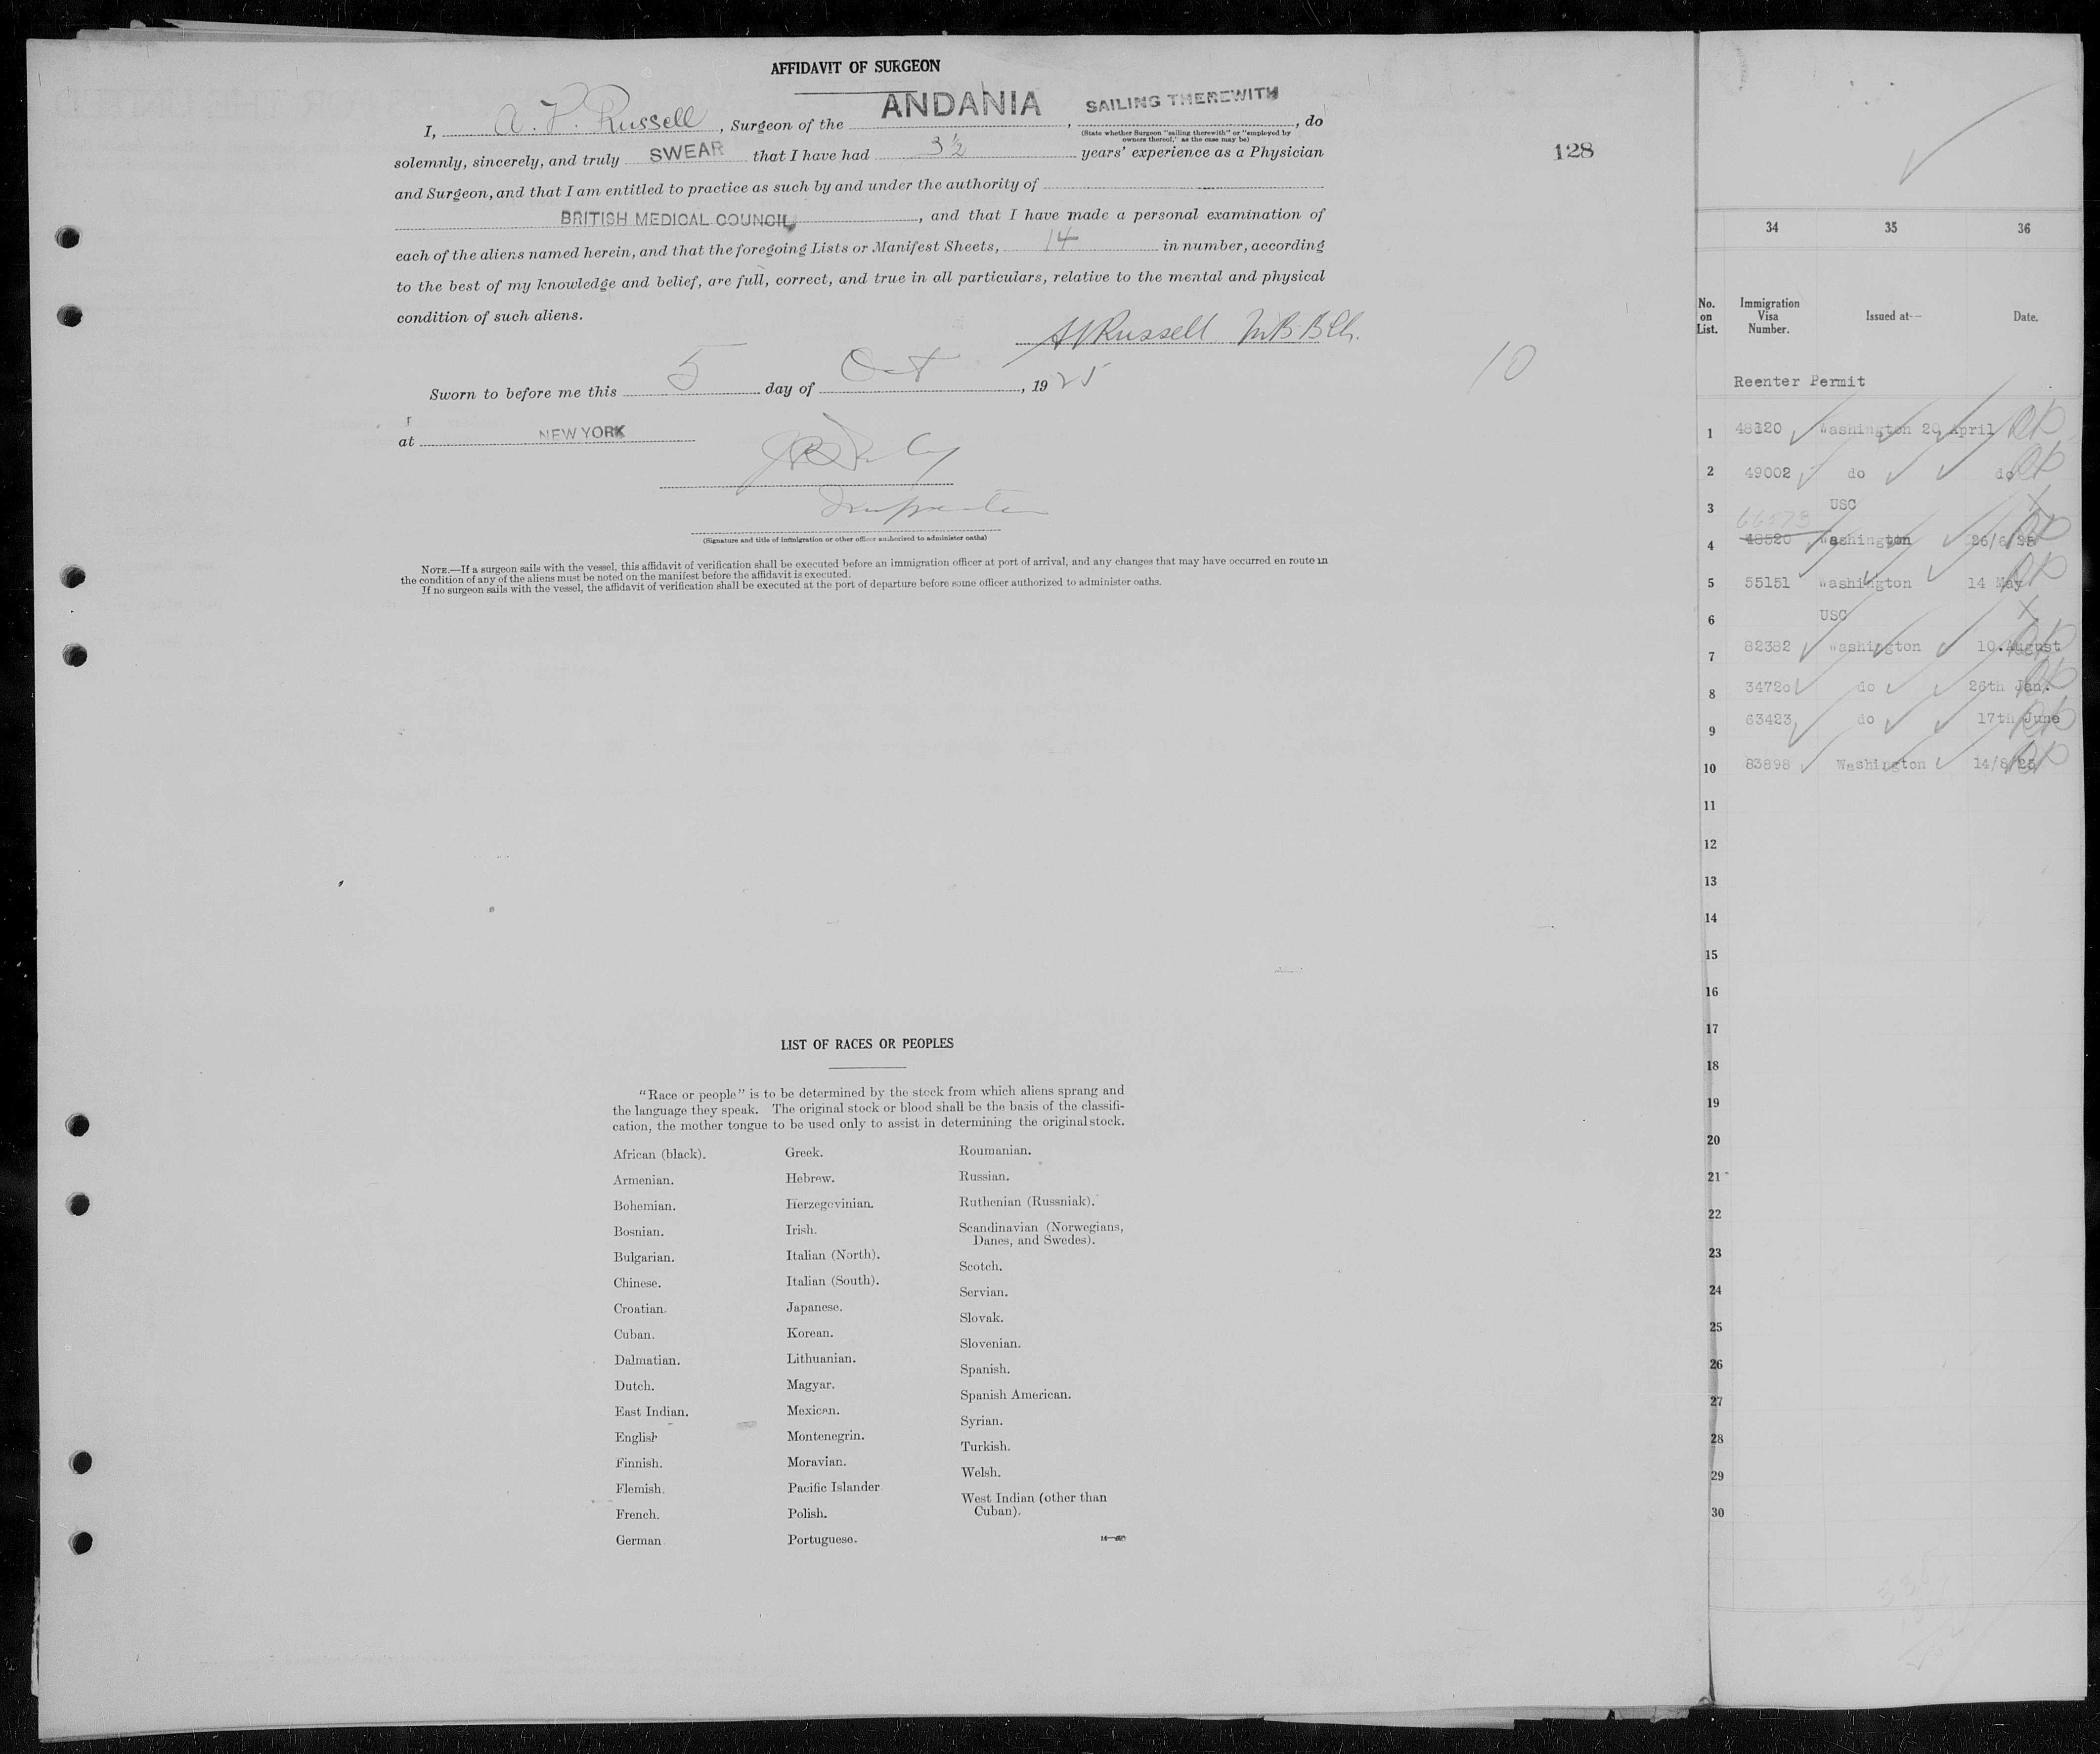 AFFIDAVIT OF SURGEON
I, A. V. Russell, Surgeon of the ANDANIA, SAILING THEREWITH, do
(State whether Surgeon "sailing therewith" or "employed by
owners thereof," as the case may be)
solemnly, sincerely, and truly SWEAR that I have had 3½ years' experience as a Physician
and Surgeon, and that I am entitled to practice as such by and under the authority of
BRITISH MEDICAL COUNCIL, and that I have made a personal examination of
each of the aliens named herein, and that the foregoing Lists or Manifest Sheets, 14 in number, according
to the best of my knowledge and belief, are full, correct, and true in all particulars, relative to the mental and physical
condition of such aliens.
AVRussell M.B. B.Ch.
Sworn to before me this 5 day of Oct, 1925
at NEW YORK
Inspector
(Signature and title of immigration or other officer authorized to administer oaths)
NOTE.—If a surgeon sails with the vessel, this affidavit of verification shall be executed before an immigration officer at port of arrival, and any changes that may have occurred en route in
the condition of any of the aliens must be noted on the manifest before the affidavit is executed.
If no surgeon sails with the vessel, the affidavit of verification shall be executed at the port of departure before some officer authorized to administer oaths.
128
10
LIST OF RACES OR PEOPLES
"Race or people" is to be determined by the stock from which aliens sprang and
the language they speak. The original stock or blood shall be the basis of the classifi-
cation, the mother tongue to be used only to assist in determining the original stock.
African (black).
Armenian.
Bohemian.
Bosnian.
Bulgarian.
Chinese.
Croatian.
Cuban.
Dalmatian.
Dutch.
East Indian.
English
Finnish.
Flemish.
French.
German
Greek.
Hebrew.
Herzegovinian.
Irish.
Italian (North).
Italian (South).
Japanese.
Korean.
Lithuanian.
Magyar.
Mexican.
Montenegrin.
Moravian.
Pacific Islander
Polish.
Portuguese.
Roumanian.
Russian.
Ruthenian (Russniak).
Scandinavian (Norwegians,
Danes, and Swedes).
Scotch.
Servian.
Slovak.
Slovenian.
Spanish.
Spanish American.
Syrian.
Turkish.
Welsh.
West Indian (other than
Cuban).
34 35 36
No. on List. Immigration Visa Number. Issued at— Date.
Reenter Permit
1 48120 Washington 20 April
2 49002 do do
3 USC
66573
4 48520 Washington 26/6/25
5 55151 Washington 14 May
6 USC
7 82382 Washington 10.August
8 34720 do 26th Jan.
9 63423 do 17th June
10 83898 Washington 14/8/25
11
12
13
14
15
16
17
18
19
20
21
22
23
24
25
26
27
28
29
30